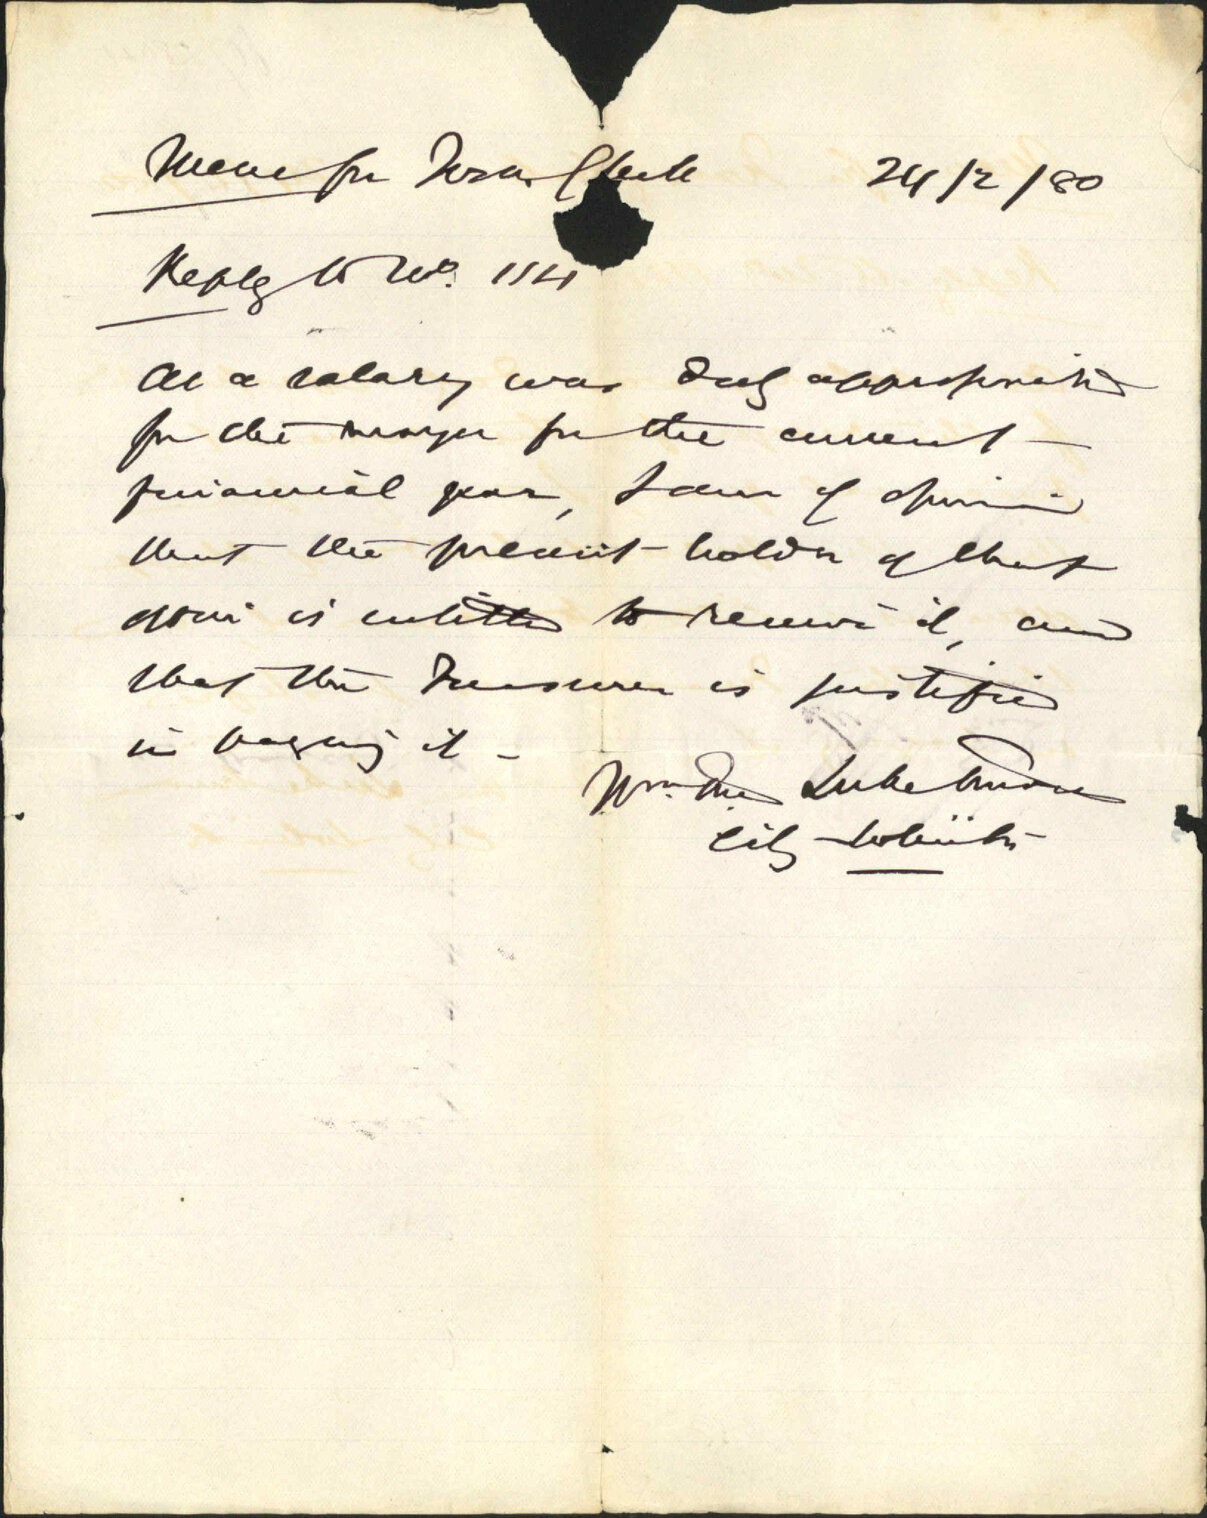 Memo for Town Clerk 24/2/80
Reply to No. 1141
As a salary was duly appropriated
for the mayor for the current
financial year, I am of opinion
that the present holder of that
office is entitled to receive it, and
that the Treasurer is justified
in paying it -
Wm.
City Solicitor